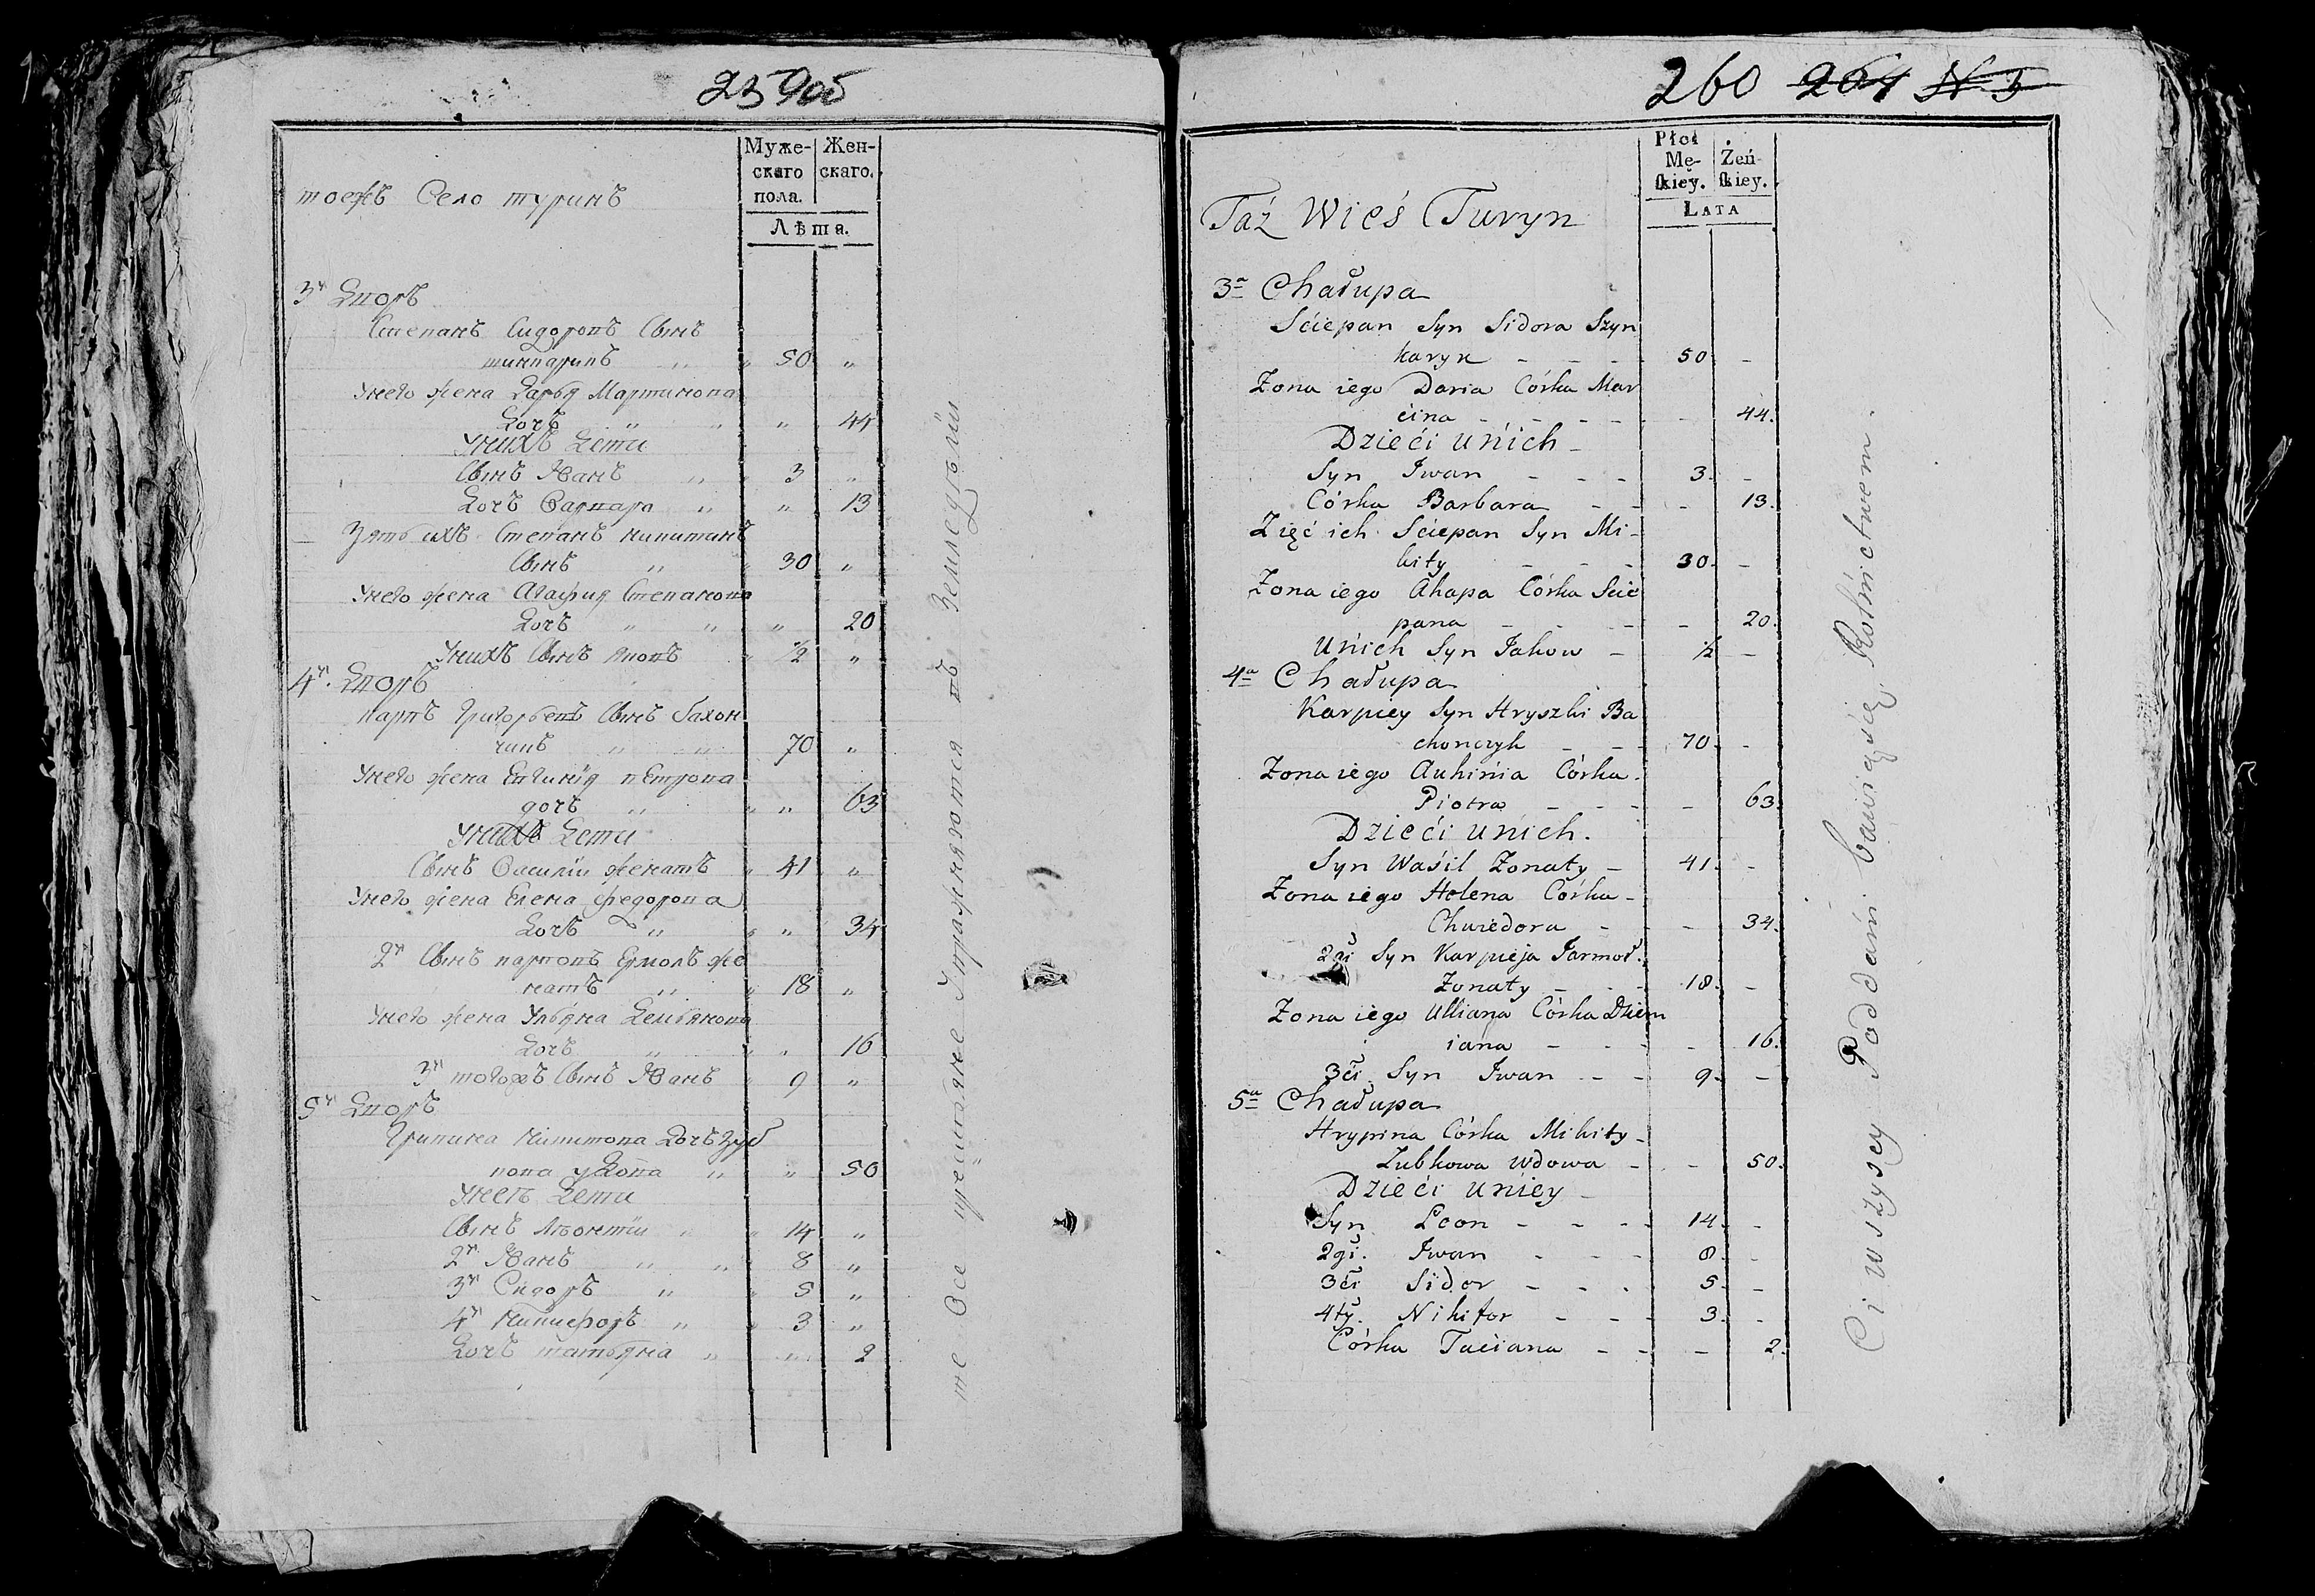 259об
Муже-
скаго
пола.
Жен-
скаго.
Лѣта.
тоежъ Село туринъ
3й Дворъ
Степанъ Сидоровъ Сынъ
шинкаривъ „ „ 50 „
Унего жена Дарья Мартинова
Дочъ „ „ „ 44
Унихъ Дети
Сынъ Иванъ „ „ 3 „
Дочъ Варвара „ „ 13
Зять ихъ Степанъ Никитинъ
Сынъ „ „ 30 „
Унего жена Агафия Степанова
Дочъ „ „ „ 20
Унихъ Сынъ Яковъ „ 1/2 „
4й Дворъ
Карпъ Григорьевъ Сынъ Бахон
чикъ „ „ 70 „
Унего жена Евгинія Петрова
дочъ „ „ „ 63
Унихъ Дети
Сынъ Василій женатъ „ 41 „
Унего жена Елена Федорова
Дочъ „ „ „ 34
2й Сынъ Карповъ Ермолъ же
натъ „ „ 18 „
Унего жена Ульяна Демьянова
Дочъ „ „ „ 16
3й тогожъ Сынъ Иванъ „ 9 „
5й Дворъ
Грипина Никитова Дочъ Зуб
кова удова „ „ 50
Унеи Дети
Сынъ Леонтій „ „ 14 „
2й Иванъ „ „ 8 „
3й Сидоръ „ „ 5 „
4й Никифоръ „ „ 3 „
Дочъ татьяна „ „ 2
те Все крестьяне Упражняются въ Земледѣліи
260 264 N. 3
Płci
Mę-
skiey.
Żeń-
skiey.
LATA
Taż Wieś Turyn
3a Chałupa
Sciepan Syn Sidora Szyn
karyk - - - 50 -
Zona iego Daria Córka Mar
cina - - - - - 44.
Dzieći unich -
Syn Iwan - - - 3. -
Córka Barbara - - - 13.
Zięć ich Sciepan Syn Mi-
kity - - - 30. -
Zona iego Ahapa Córka Scie
pana - - - - - 20.
Unich Syn Jakow - 1/2 -
4a Chałupa
Karpiey Syn Hryszki Ba
chonczyk - - - 70. -
Zona iego Auhinia Córka -
Piotra - - - - 63.
Dzieći unich.
Syn Waśil Zonaty - 41. -
Zona iego Helena Córka -
Chwiedora - - - 34.
2gi Syn Karpieja Jarmoł.
Zonaty - - - 18. -
Zona iego Ulliana Córka Dziem
iana - - - - 16.
3ci Syn Iwan - - 9. -
5a Chałupa
Hrypina Córka Mikity -
Zubkowa wdowa - - 50.
Dzieći uniey -
Syn Leon - - - 14. -
2gi. Iwan - - - 8. -
3ci Sidor - - - 5. -
4ty. Nikifor - - - 3. -
Córka Taciana - - - 2.
Ci wszyscy Poddani bawią się Rolnictwem.